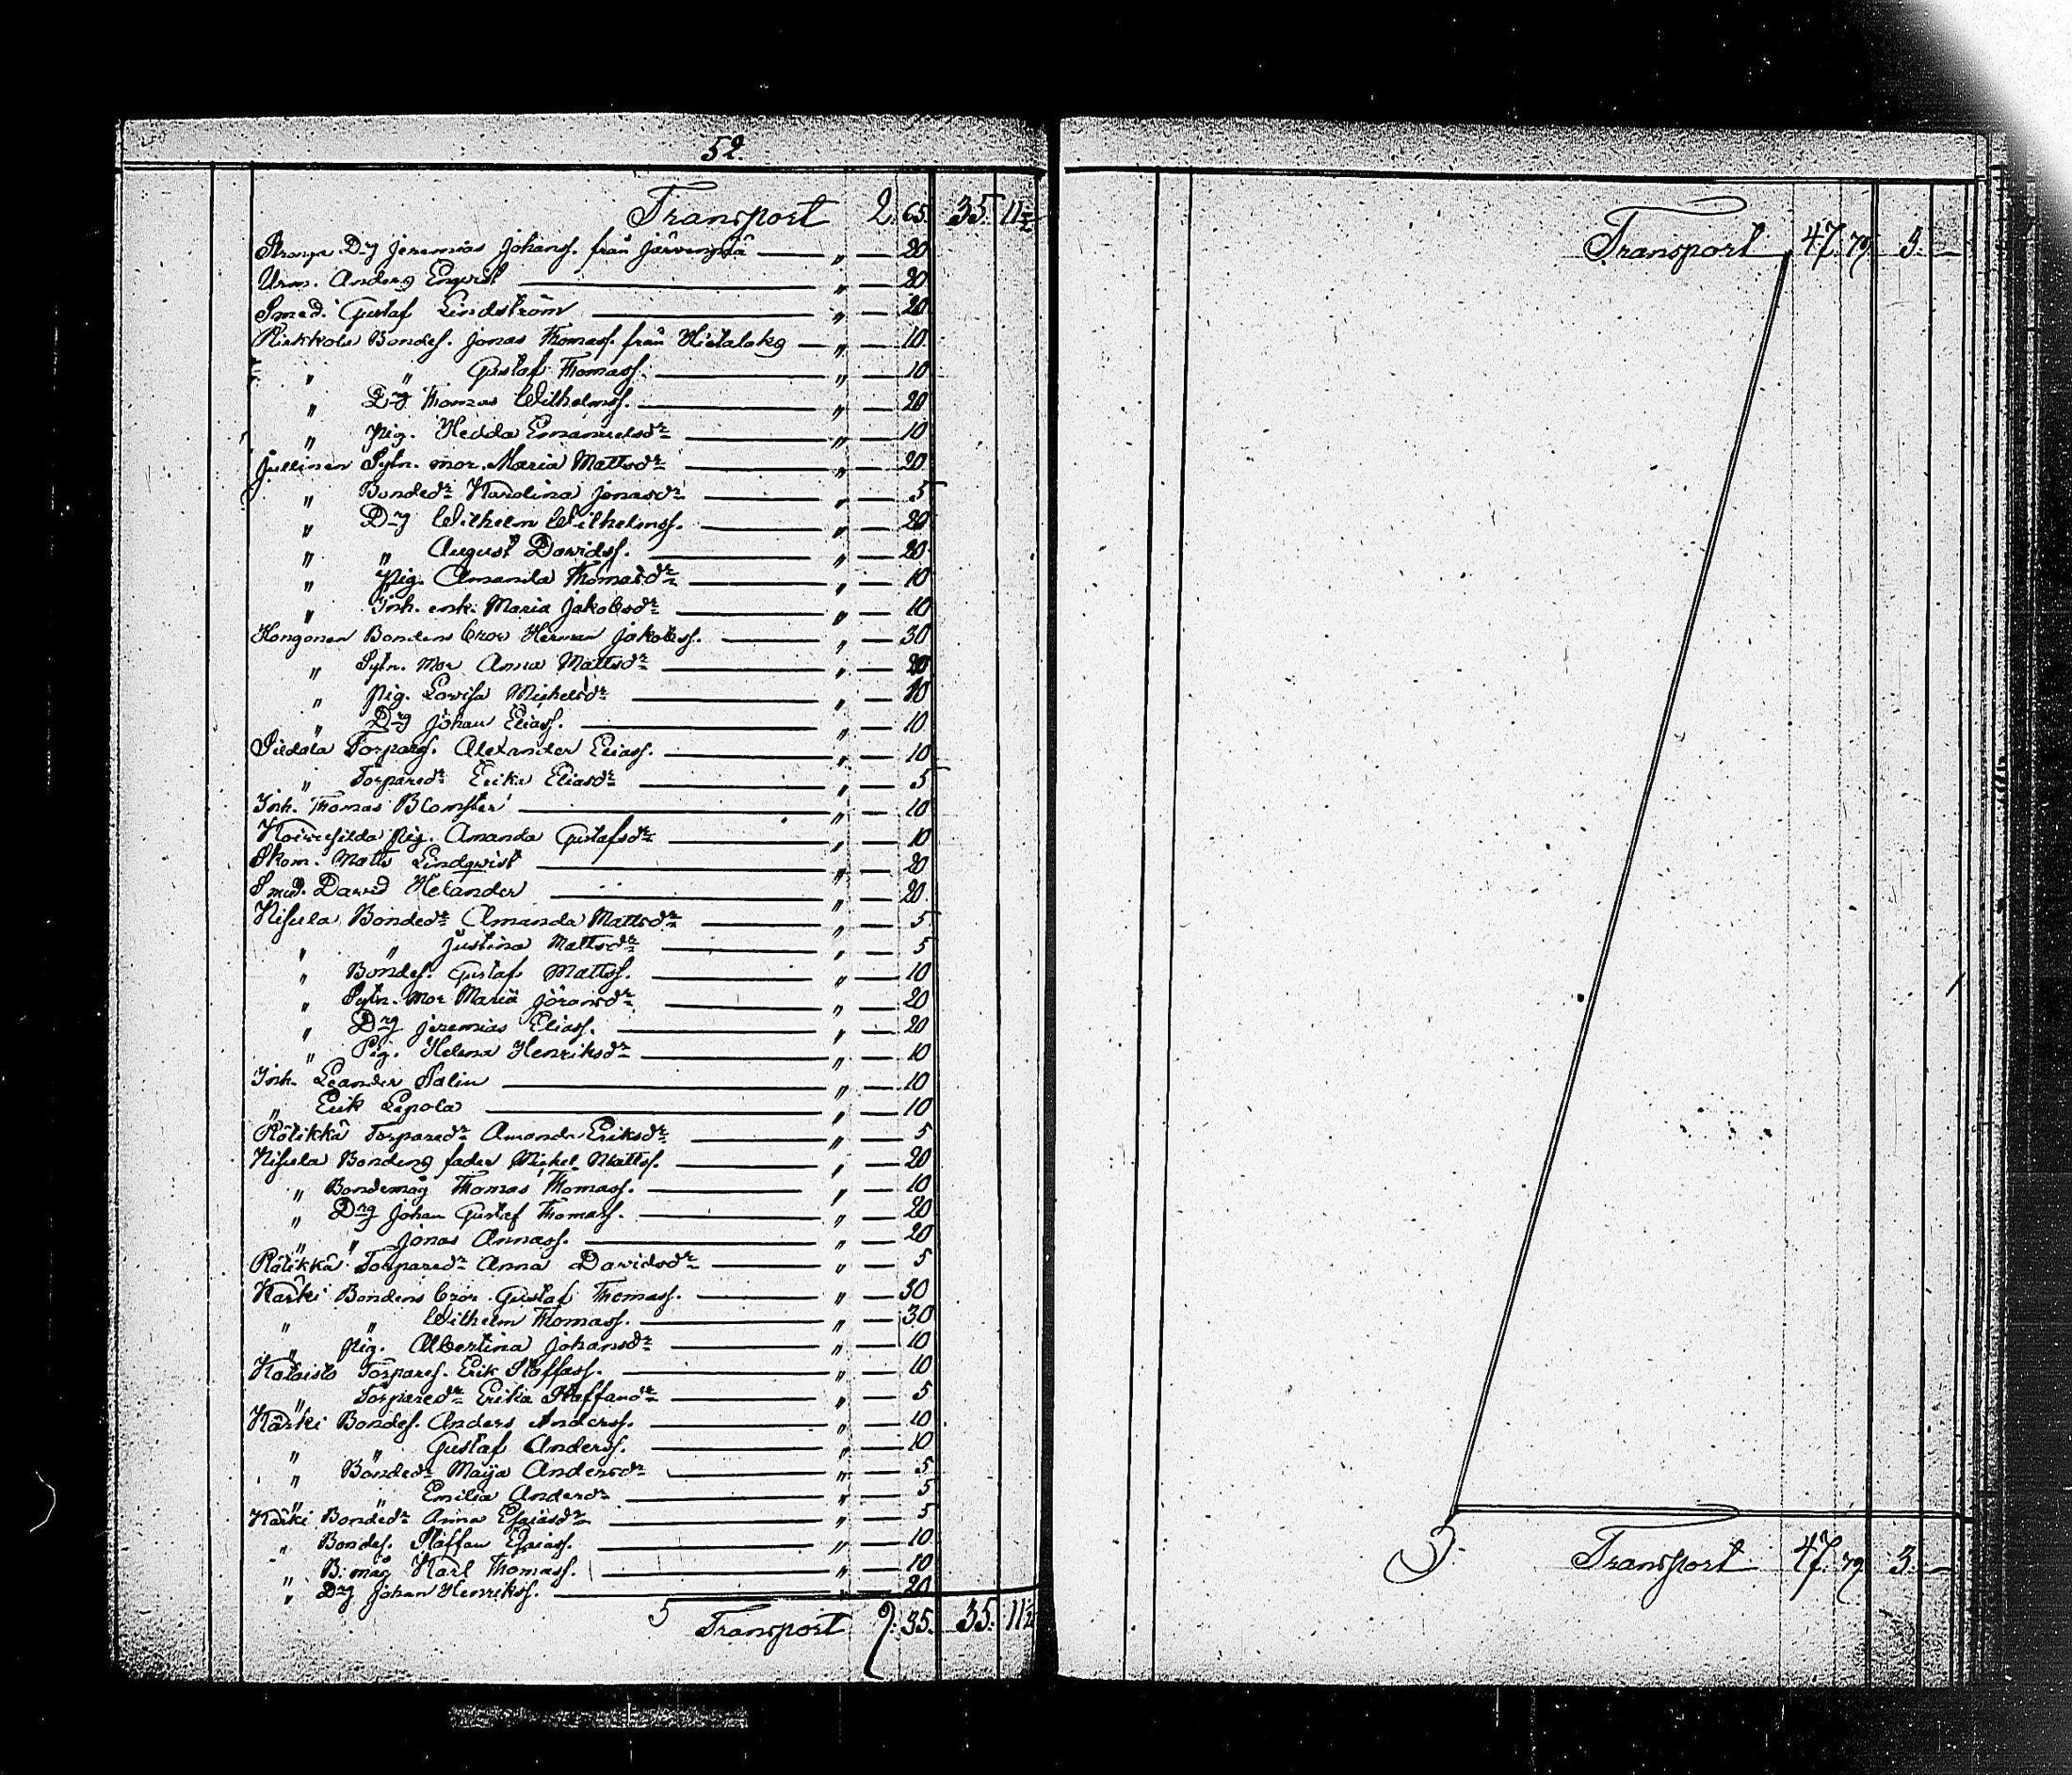 52.
Transport 2. 65. 35. 11½
Drg Jeremias Johanss. från Järvenpää " — 20
Urm. Anders Enqvist " — 20
Smed. Gustaf Lindström " — 20
Riekkola Bondes. Jonas Thomass. från Hietalaks " — 10
" " Gustaf Thomass. " — 10
" Drg Thomas Wilhelmss. " — 20
" Pig. Hedda Emanuelsdr " — 10
Jullinen Sytn. mor. Maria Mattsdr " — 20
" Bondedr Karolina Jonasdr " — 5
" Drg Wilhelm Wilhelmss. " — 20
" " August Davidss. " — 20
" Pig. Amanda Thomasdr " — 10
" Inh. enk. Maria Jakobsdr " — 10
Kongonen Bondens bror Herman Jakobss. " — 30
" Sytn. Mor Anna Mattsdr " — 20
" Pig. Lovisa Michelsdr " — 10
" Drg Johan Eliass. " — 10
Torpares. Alexander Eliass. " — 10
" Torparedr Erika Eliasdr " — 5
Inh. Thomas Blomster " — 10
Pig. Amanda Gustafsdr " — 10
Skom. Matts Lindqvist " — 20
Smed. David Helander " — 20
Nisula Bondedr Amanda Mattsdr " — 5
" " Justina Mattsdr " — 5
" Bondes. Gustaf Mattss. " — 10
" Sytn. Mor Maria Göransdr " — 20
" Drg Jeremias Eliass. " — 20
" Pig. Helena Henriksdr " — 10
Inh. Leander Salin " — 10
" Erik Lepola " — 10
Rötikkä Torparedr Amanda Eriksdr " — 5
Nisula Bondens fader Michel Mattss. " — 20
" Bondemåg Thomas Thomass. " — 10
" Drg Johan Gustaf Thomass. " — 20
" " Jonas Annass. " — 20
Rötikkä Torparedr Anna Davidsdr " — 5
Kärki Bondens bror Gustaf Thomass. " — 30
" " Wilhelm Thomass. " — 30
" Pig. Albertina Johansdr " — 10
Kataisto Torpares. Erik Staffass. " — 10
" Torparedr Erika Staffansdr " — 5
Kärki Bondes. Anders Anderss. " — 10
" " Gustaf Anderss. " — 10
" Bondedr Maija Andersdr " — 5
" " Emilia Andersdr " — 5
Kärki Bondedr Anna Esaiasdr " — 5
" Bondes. Staffan Esaiass. " — 10
" B. måg Karl Thomass. " — 10
" Drg Johan Henrikss. " — 20
5 Transport 9. 35. 35. 11½
Transport 47. 79. 3. —
Transport 47. 79. 3. —